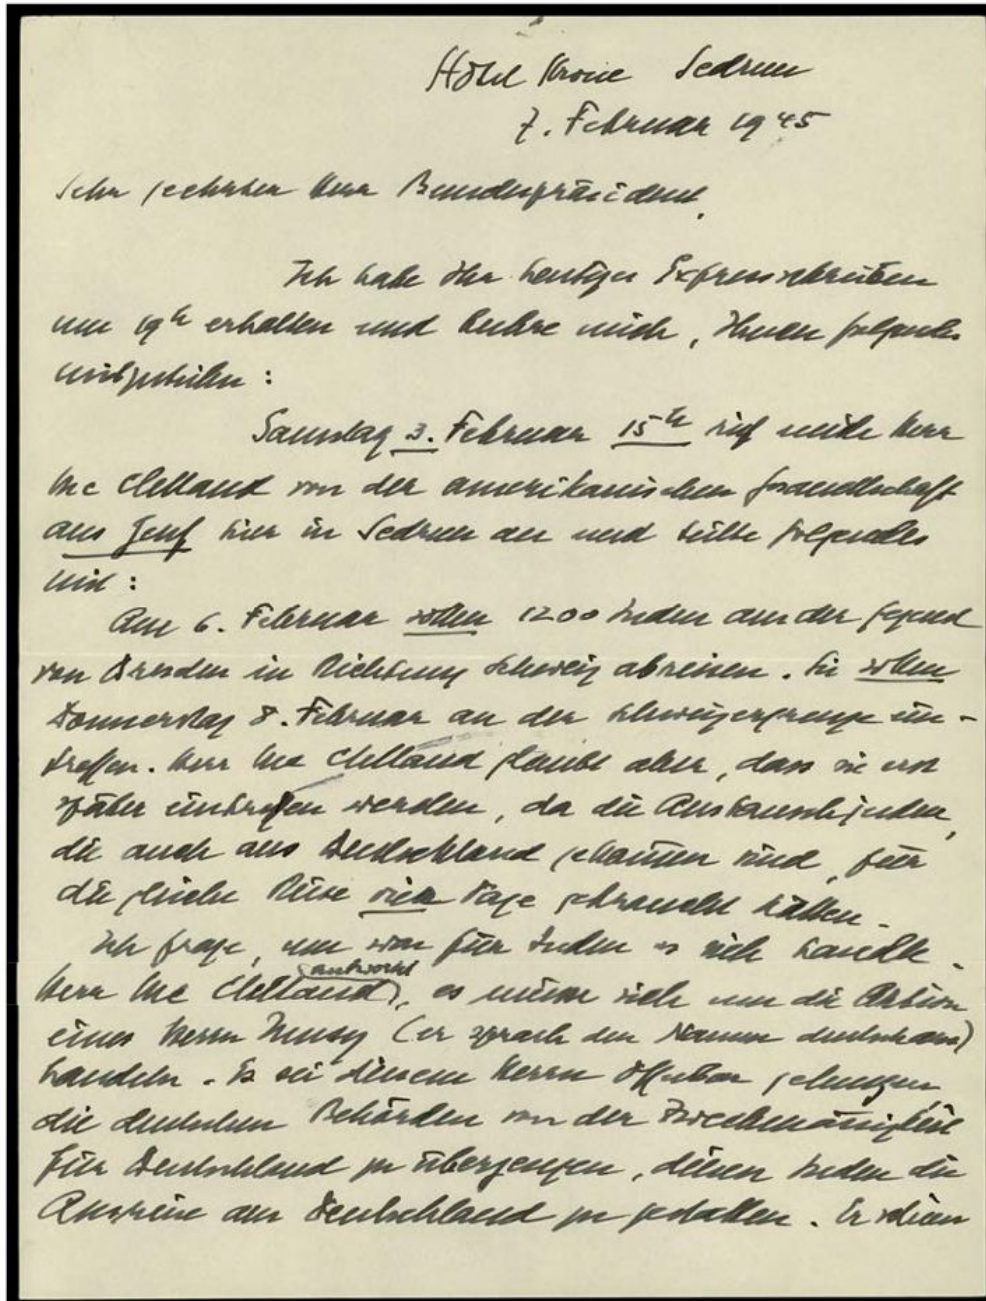 Hôtel Krone Sedrun
7. Februar 1945
Sehr geehrter Herr Bundespräsident,
Ich habe Ihr heutiges Expressschreiben
um 19h erhalten und beehre mich, Ihnen folgendes
mitzuteilen:
Samstag 3. Februar 15h rief mich Herr
Mc Clelland von der amerikanischen Gesandtschaft
aus Genf hier in Sedrun an und teilte folgendes
mit:
Am 6. Februar sollen 1200 Juden aus der Gegend
von Dresden in Richtung Schweiz abreisen. Sie sollen
Donnerstag 8. Februar an der Schweizergrenze ein-
treffen. Herr Mc Clelland glaubt aber, dass sie erst
später eintreffen werden, da die Austauschjuden,
die auch aus Deutschland gekommen sind, für
die gleiche Reise vier Tage gebraucht hätten.
Ich frage, um was für Juden es sich handle.
Herr Mc Clelland antwortet, es müsse sich um die Aktion
eines Herrn Musy (er sprach den Namen deutsch aus)
handeln. Es sei diesem Herrn offenbar gelungen,
die deutschen Behörden von der Zweckmässigkeit
für Deutschland zu überzeugen, diesen Juden die
Ausreise aus Deutschland zu gestatten. Er schien